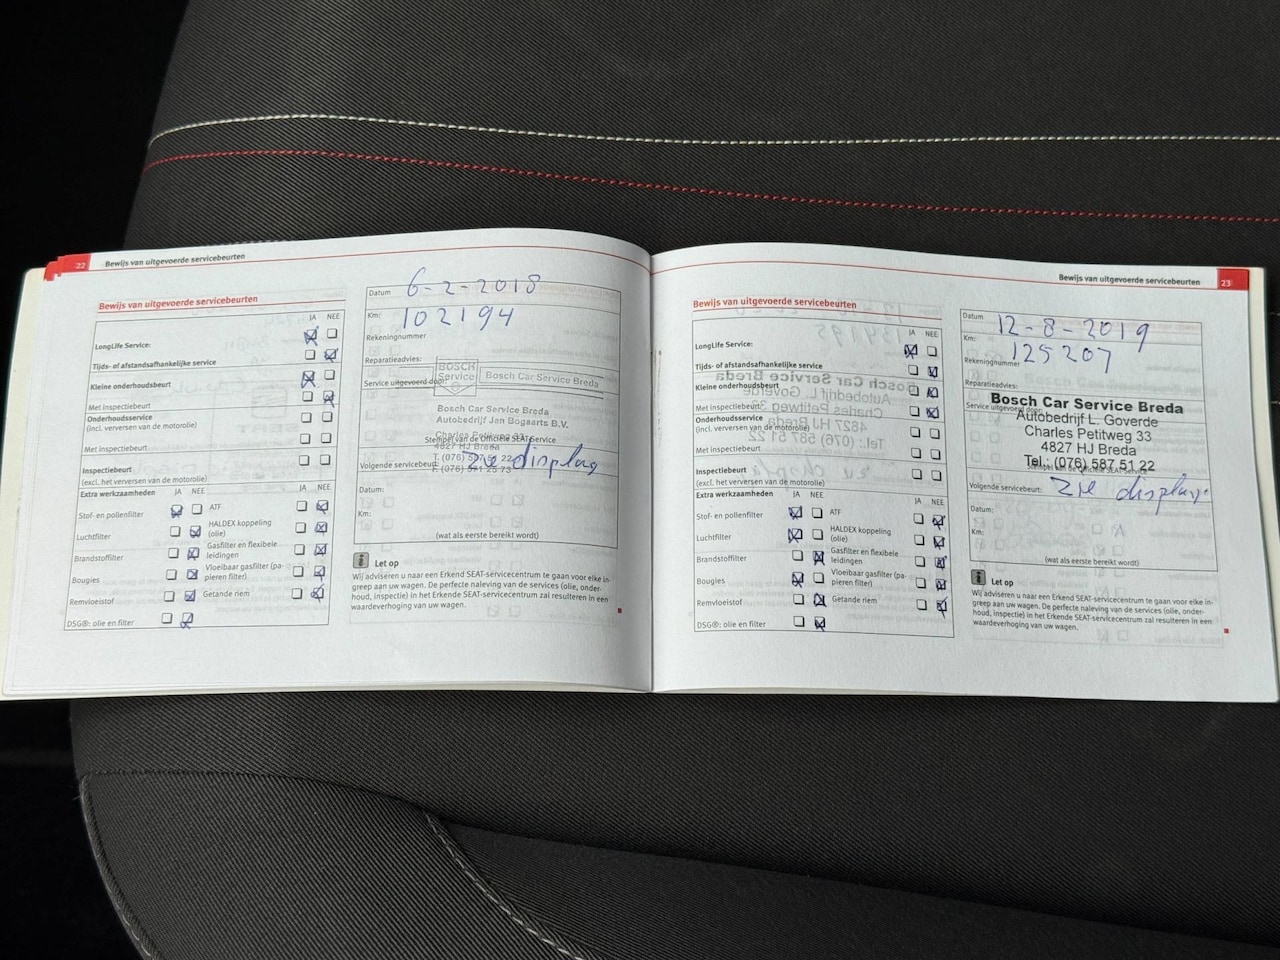 22 Bewijs van uitgevoerde servicebeurten
Bewijs van uitgevoerde servicebeurten
JA NEE
LongLife Service:
Tijds- of afstandsafhankelijke service
Kleine onderhoudsbeurt
Met inspectiebeurt
Onderhoudsservice
(incl. verversen van de motorolie)
Met inspectiebeurt
Inspectiebeurt
(excl. het verversen van de motorolie)
Extra werkzaamheden JA NEE
Stof- en pollenfilter
Luchtfilter
Brandstoffilter
Bougies
Remvloeistof
DSG®: olie en filter
ATF
HALDEX koppeling
(olie)
Gasfilter en flexibele
leidingen
Vloeibaar gasfilter (pa-
pieren filter)
Getande riem
Datum 6-2-2018
Km: 102194
Rekeningnummer
Reparatieadvies:
Service uitgevoerd door:
BOSCH
Service
Bosch Car Service Breda
Bosch Car Service Breda
Autobedrijf Jan Bogaarts B.V.
4827 HJ Breda
Stempel van de Officiële SEAT-Service
Volgende servicebeurt: Zie display
Datum:
Km:
(wat als eerste bereikt wordt)
Let op
Wij adviseren u naar een Erkend SEAT-servicecentrum te gaan voor elke in-
greep aan uw wagen. De perfecte naleving van de services (olie, onder-
houd, inspectie) in het Erkende SEAT-servicecentrum zal resulteren in een
waardeverhoging van uw wagen.
Bewijs van uitgevoerde servicebeurten 23
Bewijs van uitgevoerde servicebeurten
JA NEE
LongLife Service:
Tijds- of afstandsafhankelijke service
Kleine onderhoudsbeurt
Met inspectiebeurt
Onderhoudsservice
(incl. verversen van de motorolie)
Met inspectiebeurt
Inspectiebeurt
(excl. het verversen van de motorolie)
Extra werkzaamheden JA NEE JA NEE
Stof- en pollenfilter
Luchtfilter
Brandstoffilter
Bougies
Remvloeistof
DSG®: olie en filter
ATF
HALDEX koppeling
(olie)
Gasfilter en flexibele
leidingen
Vloeibaar gasfilter (pa-
pieren filter)
Getande riem
Datum 12-8-2019
Km: 125207
Rekeningnummer
Reparatieadvies:
Service uitgevoerd door:
Bosch Car Service Breda
Autobedrijf L. Goverde
Charles Petitweg 33
4827 HJ Breda
Tel.: (076) 587 51 22
Volgende servicebeurt: Zie display
Datum:
Km:
(wat als eerste bereikt wordt)
Let op
Wij adviseren u naar een Erkend SEAT-servicecentrum te gaan voor elke in-
greep aan uw wagen. De perfecte naleving van de services (olie, onder-
houd, inspectie) in het Erkende SEAT-servicecentrum zal resulteren in een
waardeverhoging van uw wagen.